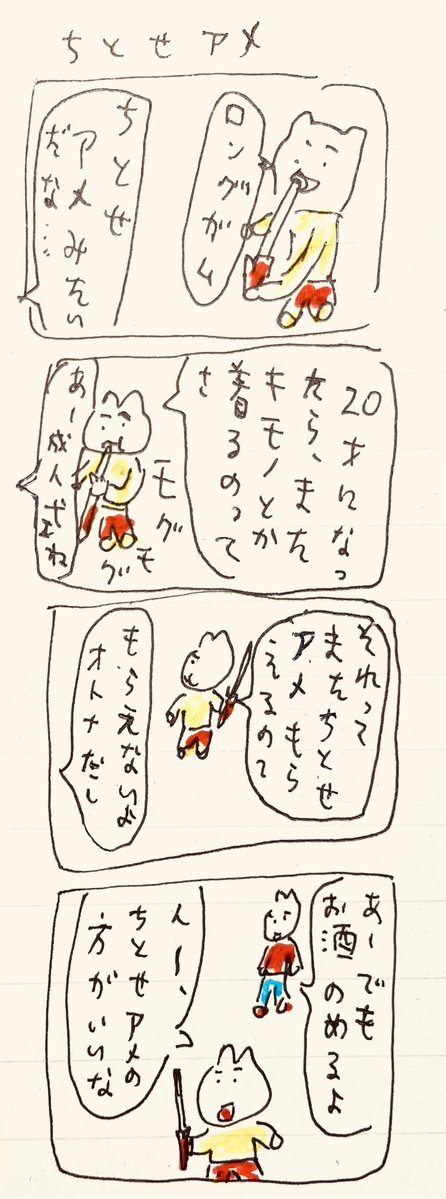 ちとせアメ
ロングがム
ちとせ
アメみたい
だな…
20才になっ
たら、また
キモノとか
着るのって
さ
モグ
モグ
あー成人式ね
それって
またちとせ
アメもら
えるの?
もらえないよ
オトナだし
あーでも
お酒のめるよ
んー、
ちとせアメの
方がいいな